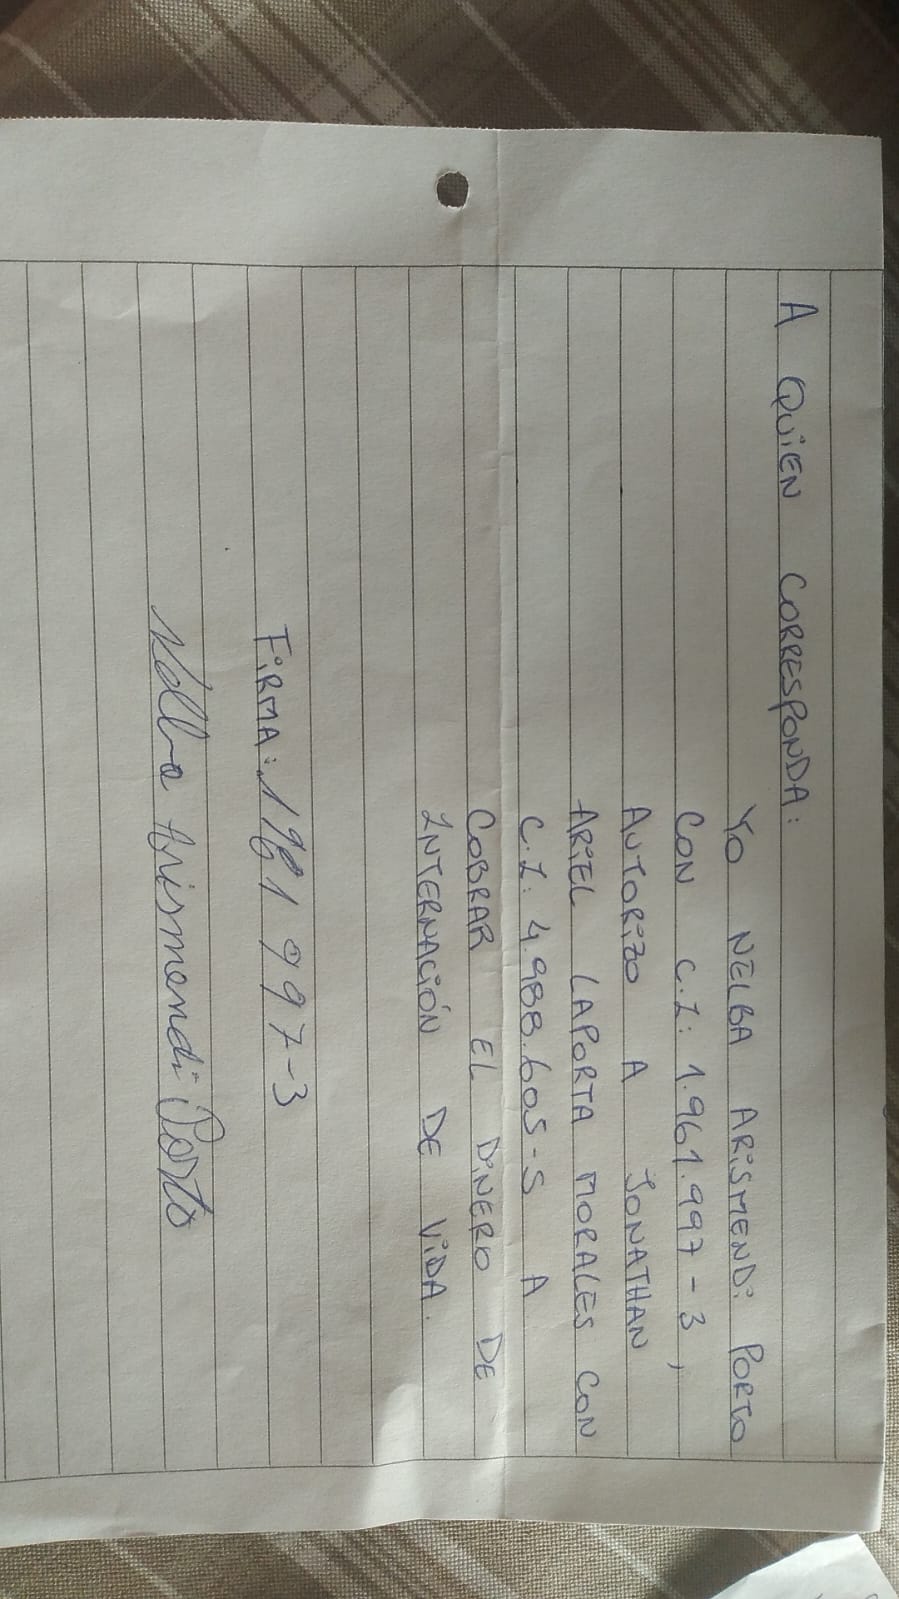 A QUIEN CORRESPONDA:
YO NELBA ARISMENDI PORTO
CON C.I: 1.961.997-3,
AUTORIZO A JONATHAN
ARIEL LAPORTA MORALES CON
C.I: 4.988.605-5 A
COBRAR EL DINERO DE
INTERNACIÓN DE VIDA.
FIRMA: 1961997-3
Nelba Arismendi Porto